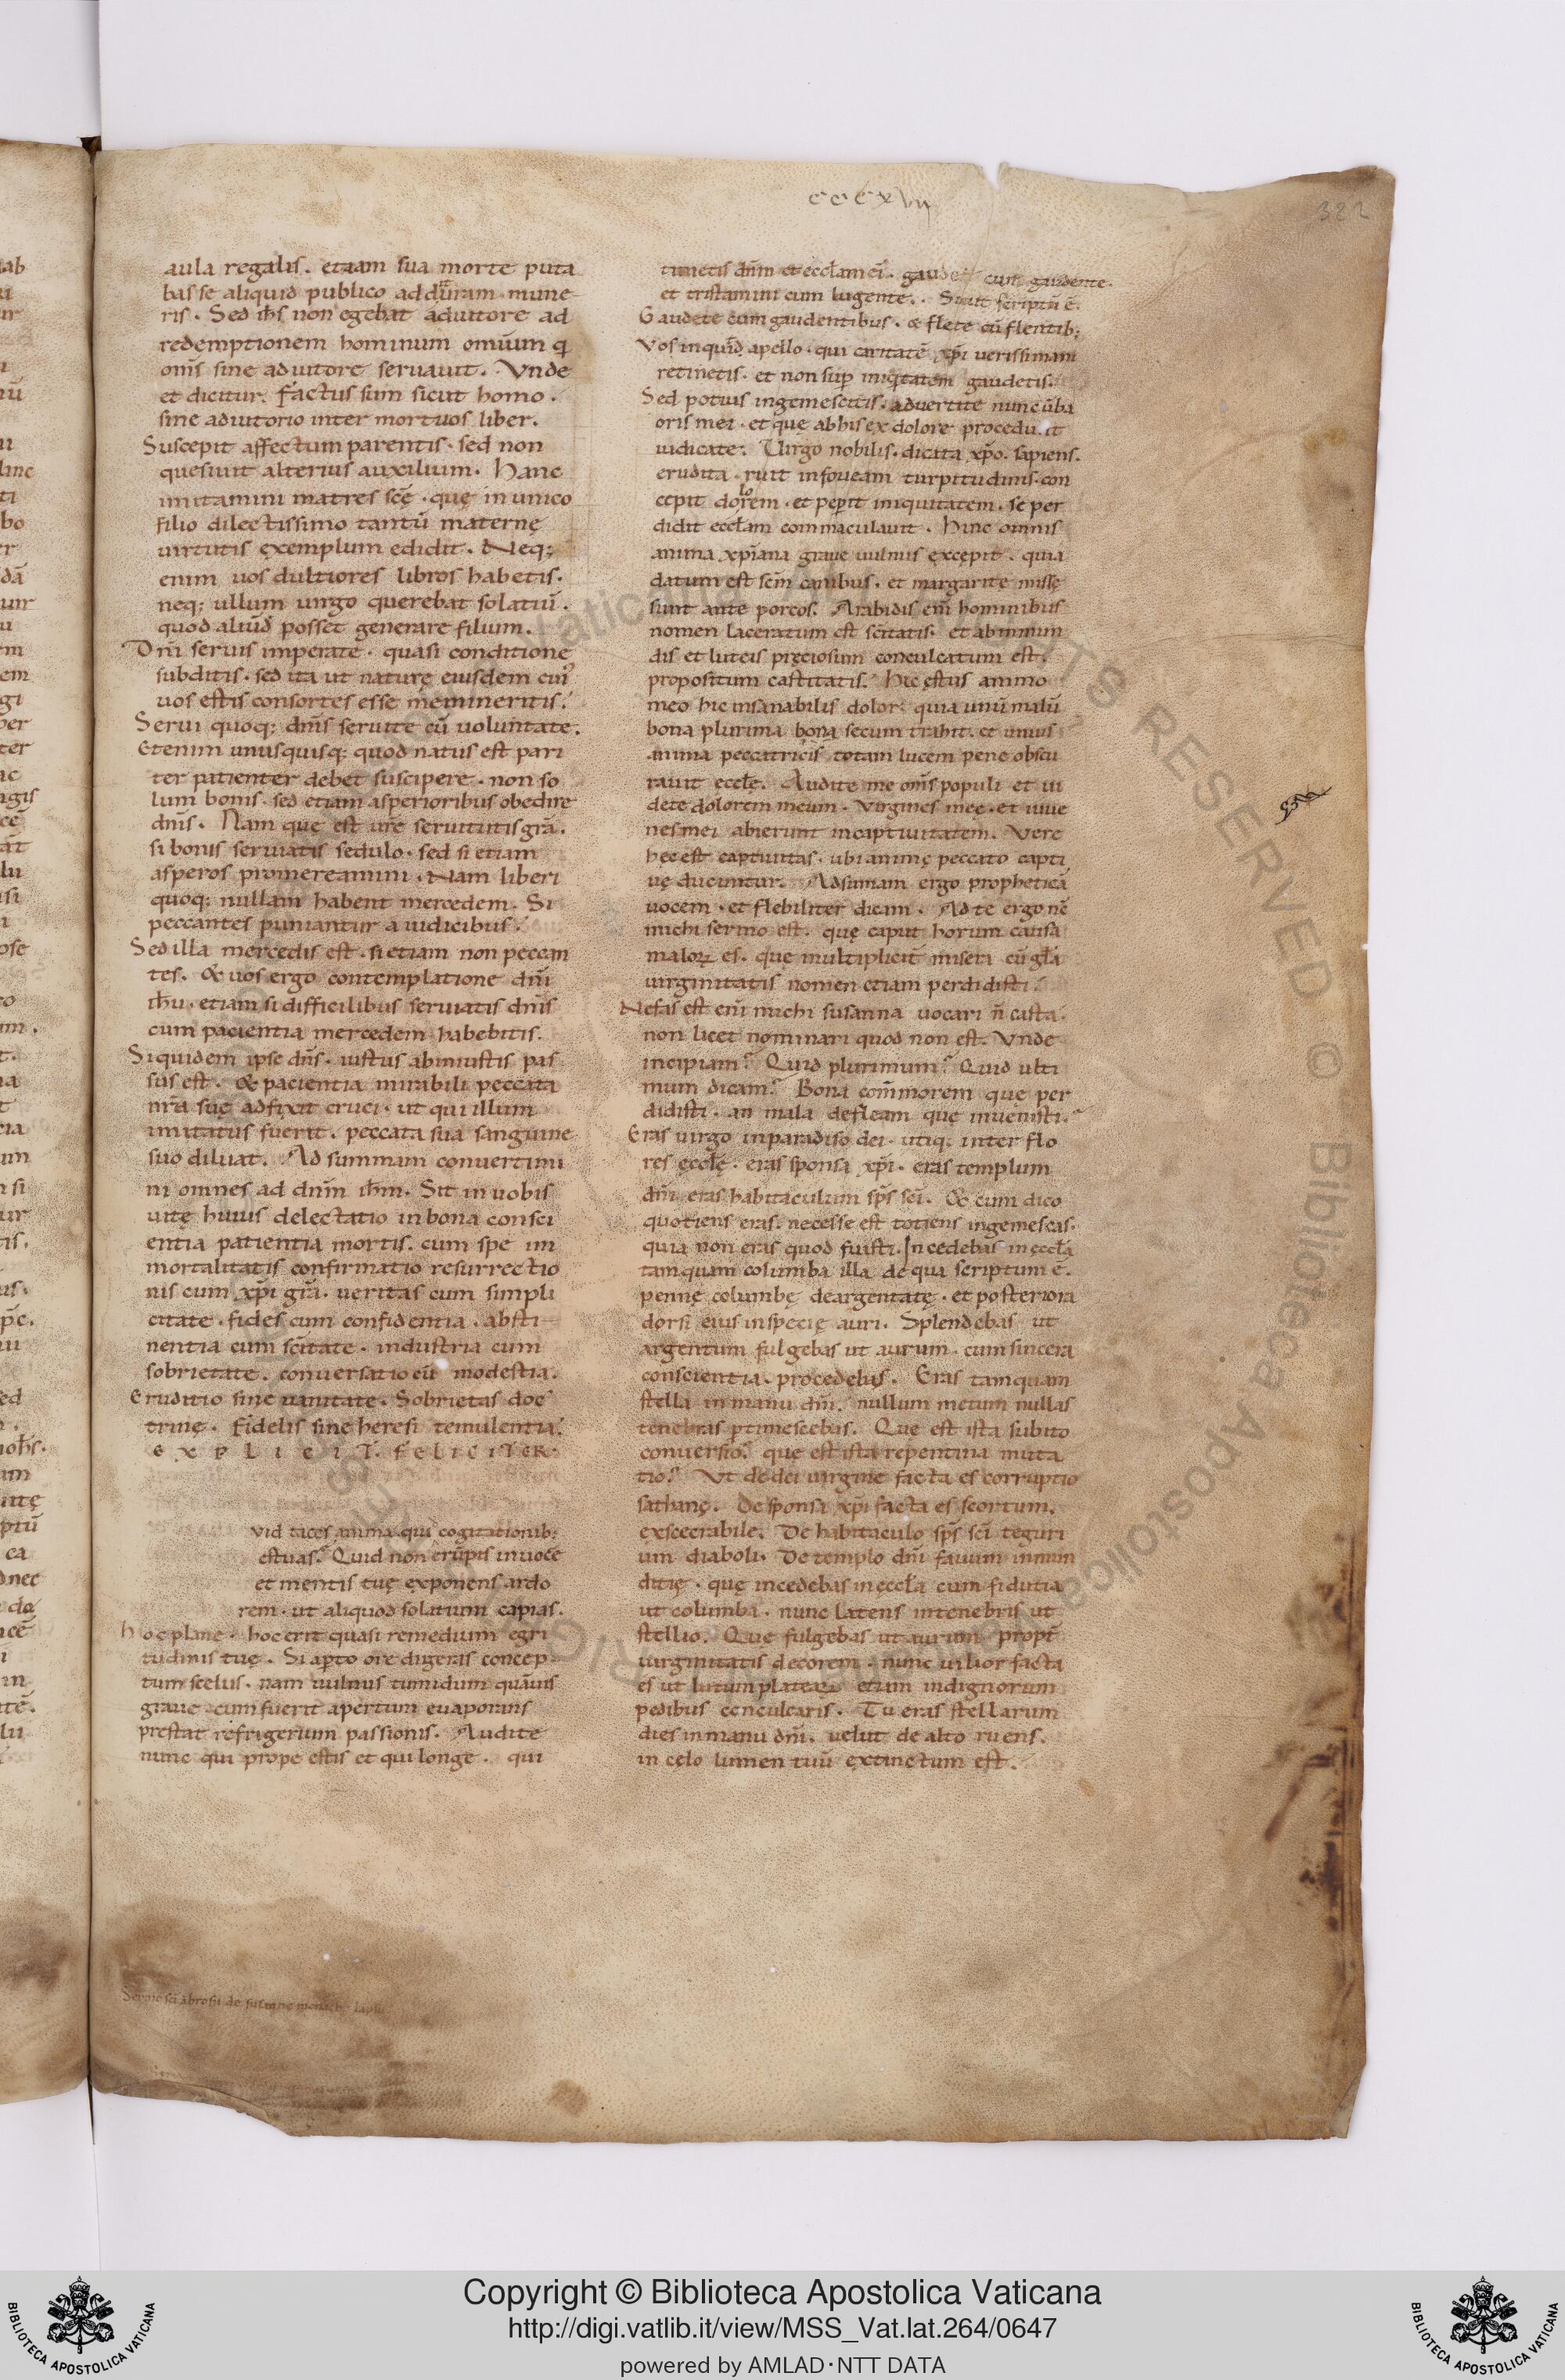 cccxvii
322
aula regalis. etiam sua morte puta
bat se aliquid publico addituram mune
ris. Sed ihs̄ non egebat adiutore ad
redemptionem hominum omiūm qi
om̄s sine adiutore seruauit. Vnde
et dicitur. Factus sum sicut homo.
sine adiutorio inter mortuos liber.
Suscepit affectum parentis. sed non
quesiuit alterius auxilium. Hanc
imitamini matres sc̄ę. quę in unico
filio dilectissimo tantū maternę
uirtutis exemplum edidit. Neq;
enim uos dultiores libros habetis.
neq; ullum uirgo querebat solatiū.
quod aliud posset generare filium.
Dn̄i seruis imperate. quasi conditione
subditis. sed ita ut naturę eiusdem cui9
uos estis consortes esse memineritis.
Serui quoq; dn̄is seruite cū uoluntate.
Etenim unusquisq; quod natus est pari
ter patienter debet suscipere. non so
lum bonis. sed etiam asperioribus obedire
dn̄is. Nam que est ur̄e seruitutis gr̄a.
si bonis seruiatis sedulo. sed si etiam
asperos promereamini. Nam liberi
quoq; nullam habent mercedem. Si
peccantes puniantur a iudicibus.
Sed illa mercedis est. si etiam non peccan
tes. & uos ergo contemplatione dn̄i
ih̄u. etiam si difficilibus seruiatis dn̄is
cum pacientia mercedem habebitis.
Siquidem ipse dn̄s. iustus ab iniustis pas
sus est. & pacientia mirabili peccata
nr̄a suę adfixit cruci. ut qui illum
imitatus fuerit. peccata sua sanguine
suo diluat. Ad summam conuertimi
ni omnes ad dnm̄ ihm̄. Sit in uobis
uitę huius delectatio in bona consci
entia patientia mortis. cum spe im
mortalitatis confirmatio resurrectio
nis cum xp̄i gr̄a. ueritas cum simpli
citate. fides cum confidentia. absti
nentia cum sc̄itate. industria cum
sobrietate. conuersatio cū modestia.
Eruditio sine uanitate. Sobrietas doc
trinę. Fidelis sine heresi temulentia.
EXPLICIT. FELICITER.
vid taces anima. qui cogitationib;
estuas. Quid non erūpis in uoce
et mentis tuę exponens ardo
rem. ut aliquod solatium capias.
Hoc plane. hoc erit quasi remedium egri
tudinis tuę. Si apto ore digeras concep
tum scelus. nam uulnus tumidum quāuis
graue cum fuerit apertum euaporans
prestat refrigerium passionis. Audite
nunc qui prope estis et qui longe. qui
timetis dn̄m et eccl̄am ei. gaude cum gaudente.
et tristamini cum lugente. Sicut scriptū ē.
Gaudete cum gaudentibus. & flete cū flentib;
Vos inquid apello. qui caritatē xp̄i uerissimam
retinetis. et non sup iniqitatem gaudetis.
Sed potius ingemescitis. aduertite nunc ūba
oris mei. et quę ab his ex dolore procedu it
iudicate. Virgo nobilis. dicata xp̄o. sapiens.
erudita. ruit in foueam turpitudinis. con
cepit dolorem. et pepit iniquitatem. se per
didit eccl̄am commaculauit. Hinc omnis
anima xp̄iana graue uulnus excepit. quia
datum est sc̄m canibus. et margaritę missę
sunt ante porcos. Arabidis em̄ hominibus
nomen laceratum est sc̄itatis. et ab inmun
dis et luteis preciosum conculcatum est.
propositum castitatis. Hic estus animo
meo hic insanabilis dolor. quia unū malū
bona plurima bona secum trahit. et unius
anima peccatricis totam lucem pene obscu
rauit eccl̄ę. Audite me om̄s populi et ui
dete dolorem meum. Virgines meę. et iuue
nes mei abierunt in captiuitatem. Vere
hęc est captiuitas. ubi animę peccato capti
uę ducuntur. Adsumam ergo propheticā
uocem. et flebiliter dicam. Ad te ergo nc̄
michi sermo est. quę caput horum causa
maloꝝ es. que multipliciū misera cū gl̄a
uirginitatis nomen etiam perdidisti.
Nefas est em̄ michi susanna uocari n̄ casta.
non licet nominari quod non est. Vnde
incipiam? Quid plurimum? Quid ulti
mum dicam? Bona com̄morem que per
didisti. an mala defleam que inuenisti.
Eras uirgo in paradiso dei. utiq; inter flo
res eccl̄ę. eras sponsa xp̄i. eras templum
dn̄i eras habitaculum sp̄s sc̄i. & cum dico
quotiens eras. necesse est totiens ingemescas.
quia non eras quod fuisti. Incedebas in eccl̄a
tamquam columba illa de qua scriptum ē.
pennę columbę deargentatę. et posteriora
dorsi eius in specię auri. Splendebas ut
argentum fulgebas ut aurum. cum sincera
conscientia. procedebas. Eras tamquam
stella in manu dn̄i. nullum metum nullas
tenebras ptimescebas. Que est ista subito
conuersio? que est ista repentina muta
tio? Vt de dei uirgine facta es corruptio
sathanę. De sponsa xp̄i facta es scortum.
exsecrabile. De habitaculo sp̄s sc̄i teguri
um diaboli. De templo dn̄i fanum inmun
ditię. quę incedebas in eccl̄a cum fidutia
ut columba. nunc latens in tenebris ut
stellio. Que fulgebas ut aurum propt̄
uirginitatis decorem. nunc uilior facta
es ut lutum plateaꝝ etiam indignorum
pedibus conculcaris. Tu eras stellarum
dies in manu dn̄i. uelut de alto ruens.
in cęlo lumen tuū extinctum est.
Sermo sci abrosii de susanne monache lapsu
© Biblioteca Apostolica Vaticana. ALL RIGHTS RESERVED
Copyright © Biblioteca Apostolica Vaticana
http://digi.vatlib.it/view/MSS_Vat.lat.264/0647
powered by AMLAD·NTT DATA
BIBLIOTECA APOSTOLICA VATICANA
BIBLIOTECA APOSTOLICA VATICANA